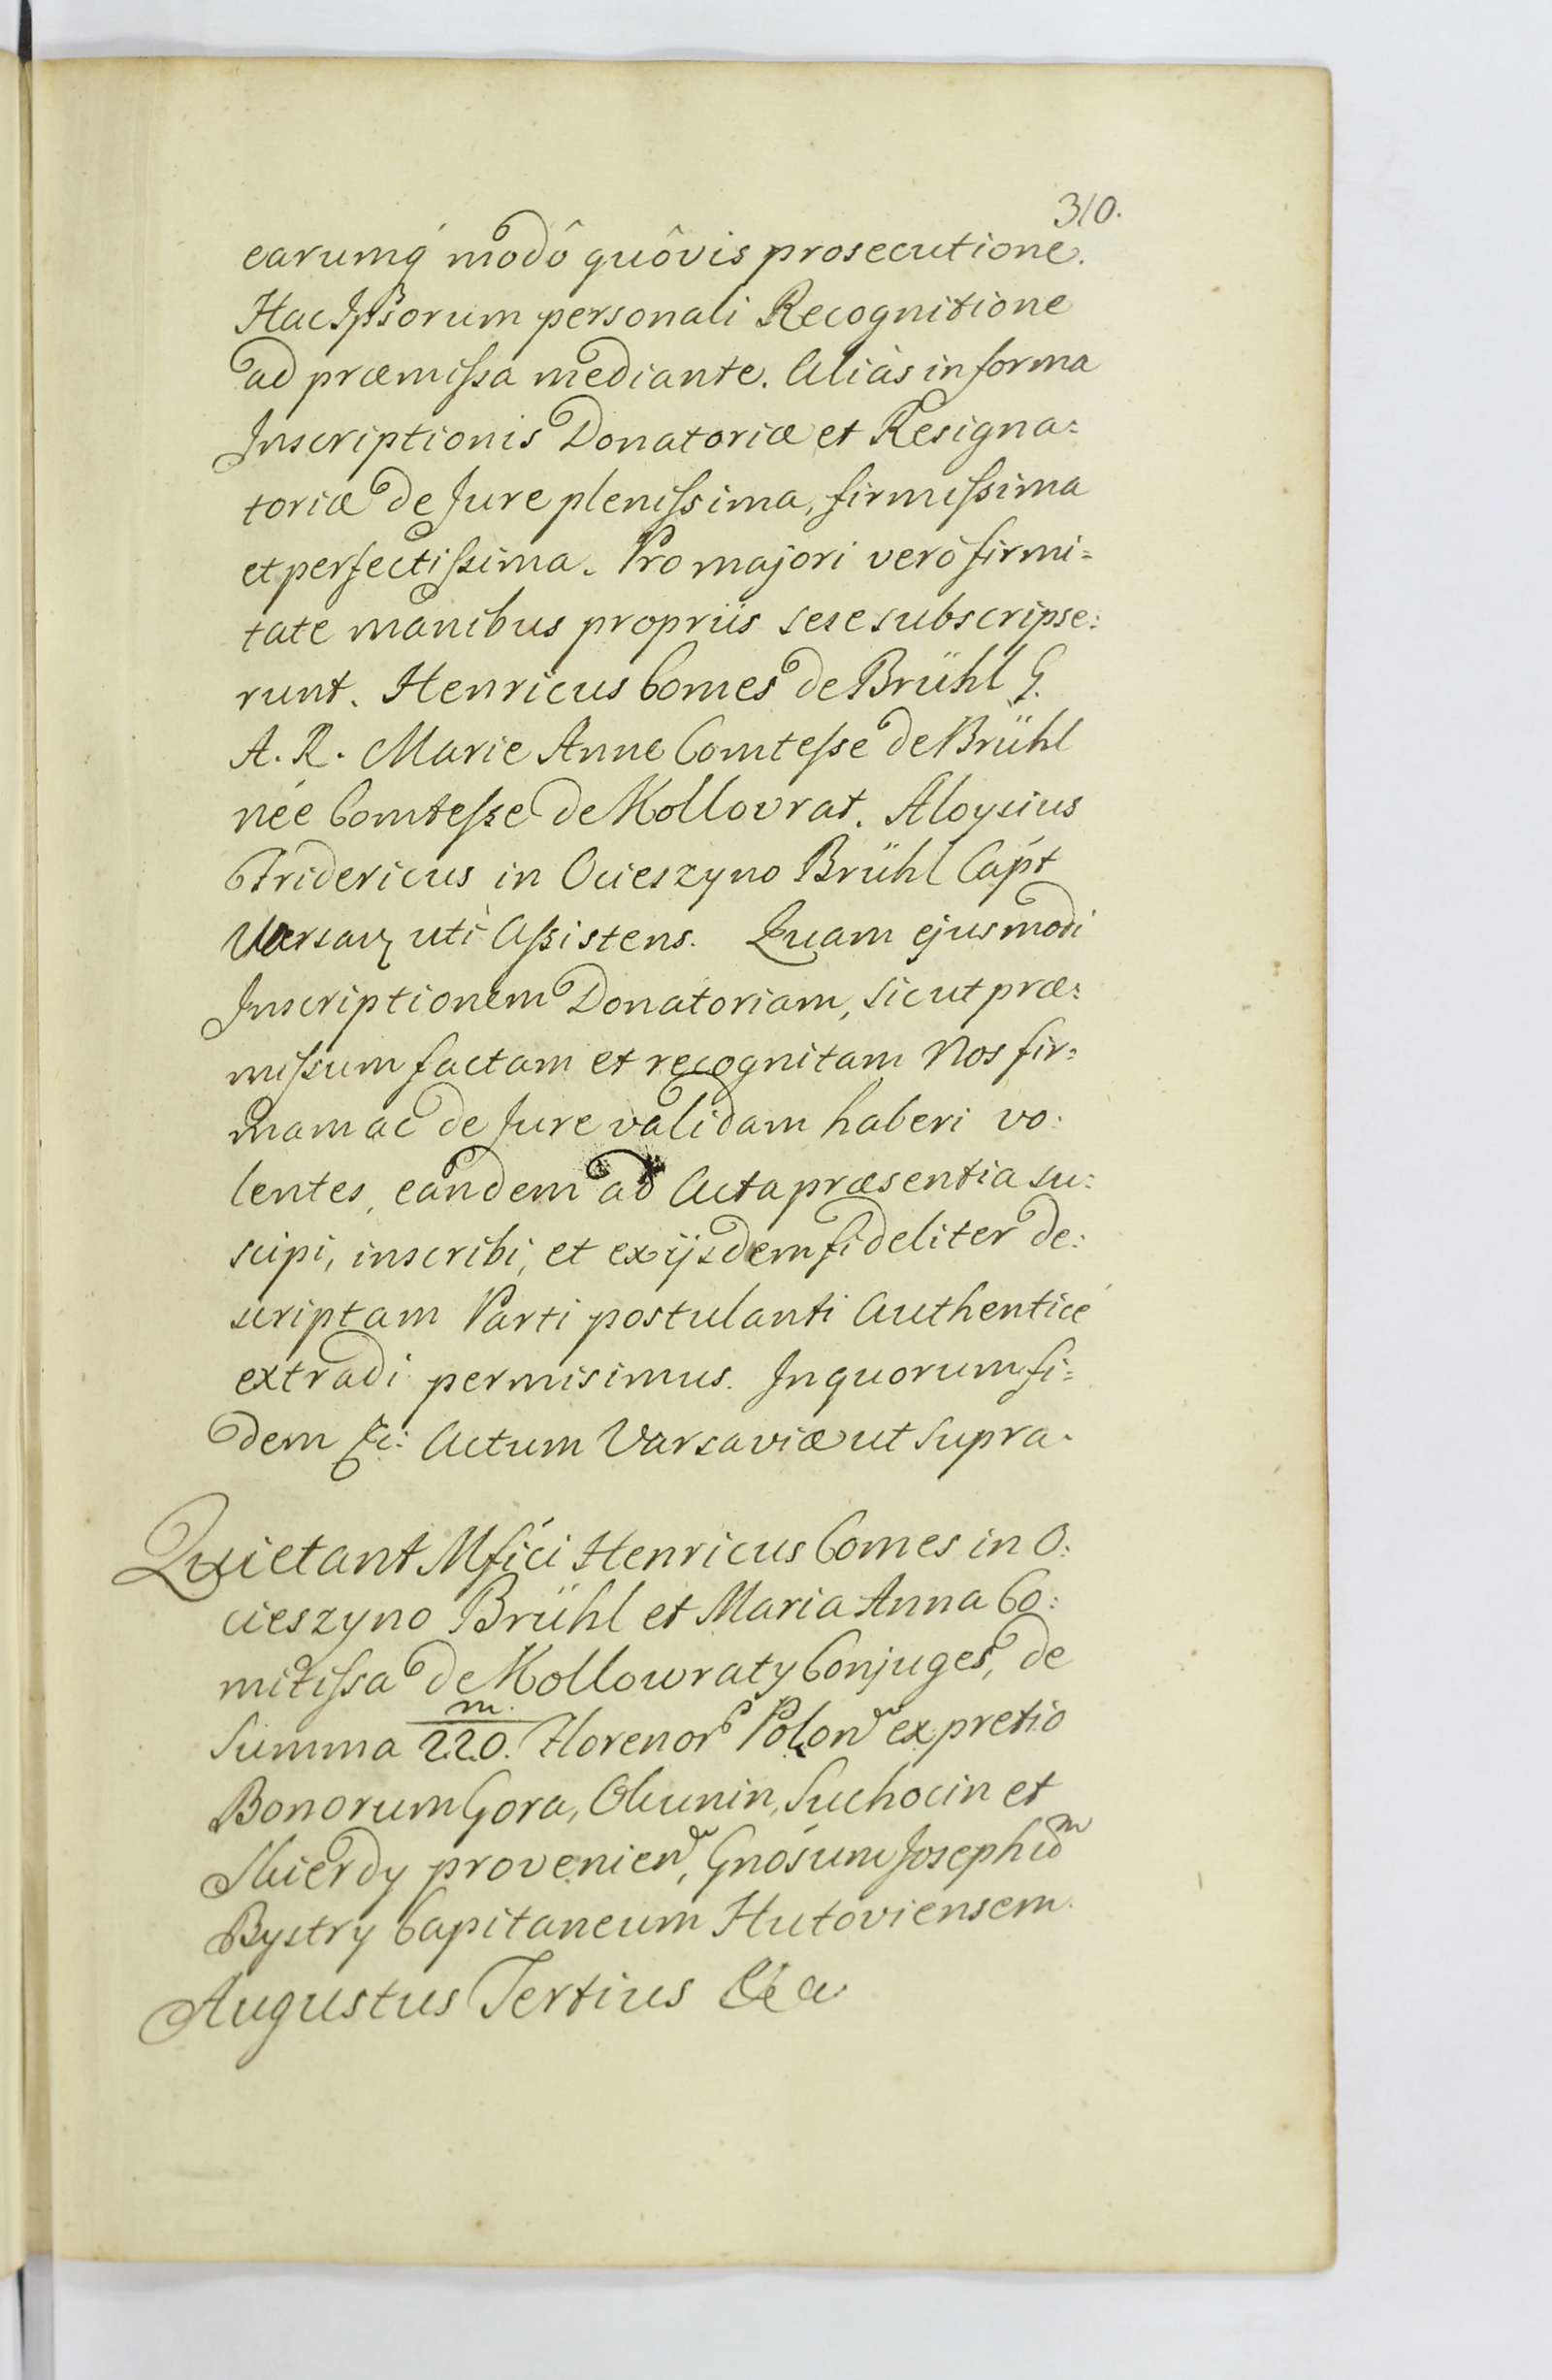 310.
earumq́ modô quôvis prosecutione.
Hac Ipsorum personali Recognitione
ad præmissa mediante. Aliàs in forma
Inscriptionis Donatoriæ et Resigna=
toriæ de Jure plenissima, firmissima
et perfectissima. Pro majori verò firmi=
tate manibus propriis sese subscripse:
runt. Henricus Comes de Brühl G.
A. R. Marie Anne Comtesse de Brühl
née Comtesse de Kollovrat. Aloysius
Fridericus in Ocieszyno Brühl Capt
Varsav utì Assistens. Quam ejusmodi
Inscriptionem Donatoriam, sicut præ:
missum factam et recognitam Nos fir=
mam ac de Jure validam haberi vo:
lentes, eandem ad Acta præsentia su:
scipi, inscribi, et ex ijsdem fideliter de:
scriptam Parti postulanti Authenticè
extradi permisimus. In quorum fi=
dem &c: Actum Varsaviæ ut supra.
Quietant Mfici Henricus Comes in O:
cieszyno Brühl et Maria Anna Co:
mitissa de Kollowraty Conjuges, de
Summa 220. m. Florenor Polon ex pretio
Bonorum Gora, Olunin, Suchocin et
Skierdy provenien, Gnosum Josephum
Bystry Capitaneum Hutoviensem.
Augustus Tertius &a